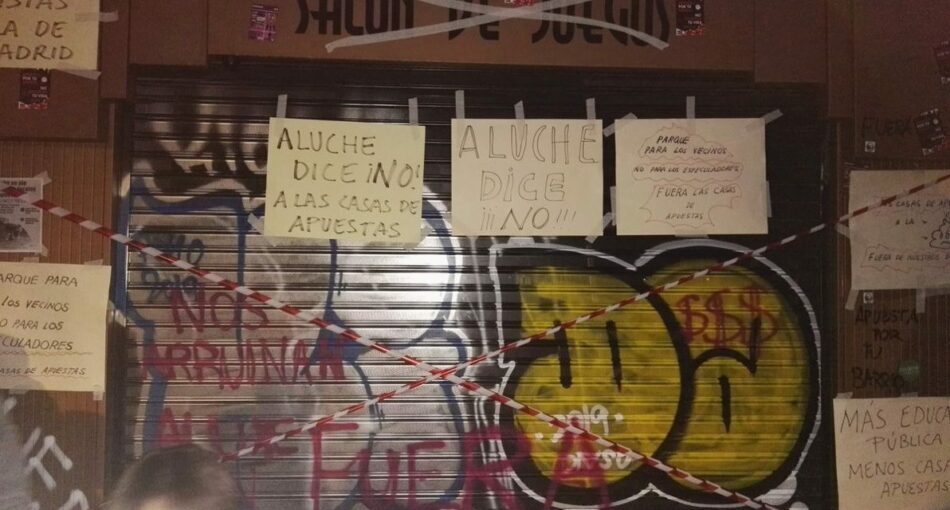 SALON DE JUEGOS
A DE
ADRID
ALUCHE
DICE ¡NO!
A LAS CASAS DE
APUESTAS
ALUCHE
DICE
¡¡¡NO!!!
PARQUE
PARA LOS VECINOS
NO PARA LOS ESPECULADORES
FUERA LAS CASAS
DE
APUESTAS
FUERA
A LA
FUERA DE NUESTROS
PARQUE PARA
LOS VECINOS
O PARA LOS
ECULADORES
CASAS DE APUESTAS
2019
NOS
ARRUINAN
FUERA
$$$
2019
APUESTA
POR
TU
BARRIO
MÁS EDUC
PÚBLICA
MENOS CASA
APUESTAS